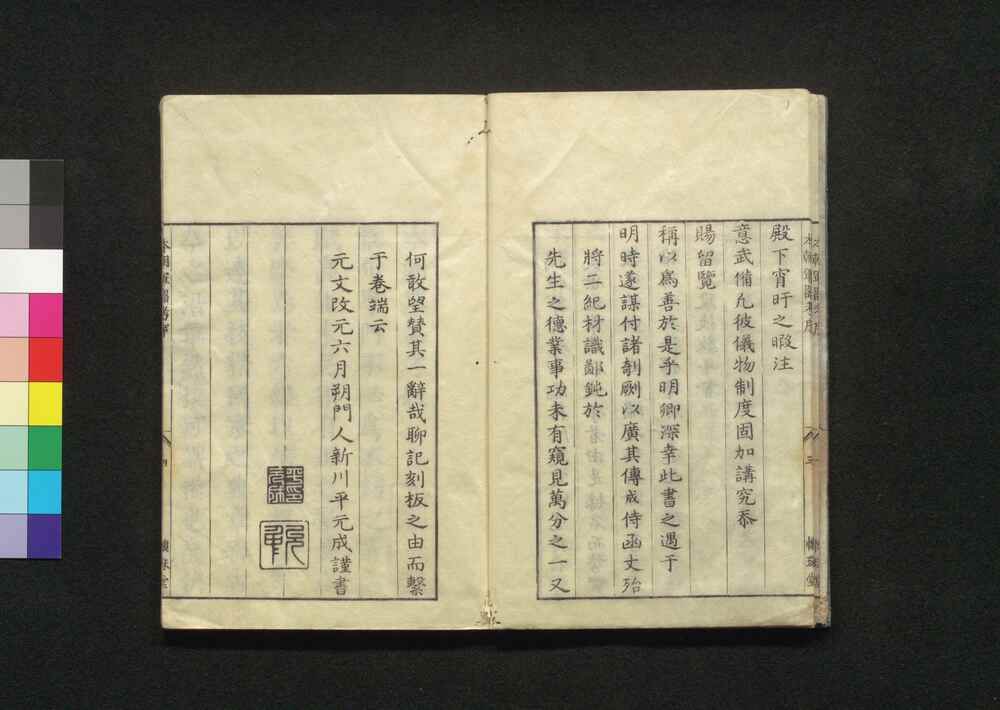 殿下宵旰之暇注
意武備凢彼儀物制度固加講究忝
賜留覽
稱以爲善於是乎明卿深幸此書之遇于
明時遂謀付諸剞劂以廣其傳成侍函丈殆
將二紀材識鄙鈍於
先生之德業事功未有窺見萬分之一又
何敢望賛其一辭哉聊記刻板之由而繫
于卷端云
元文改元六月朔門人新川平元成謹書